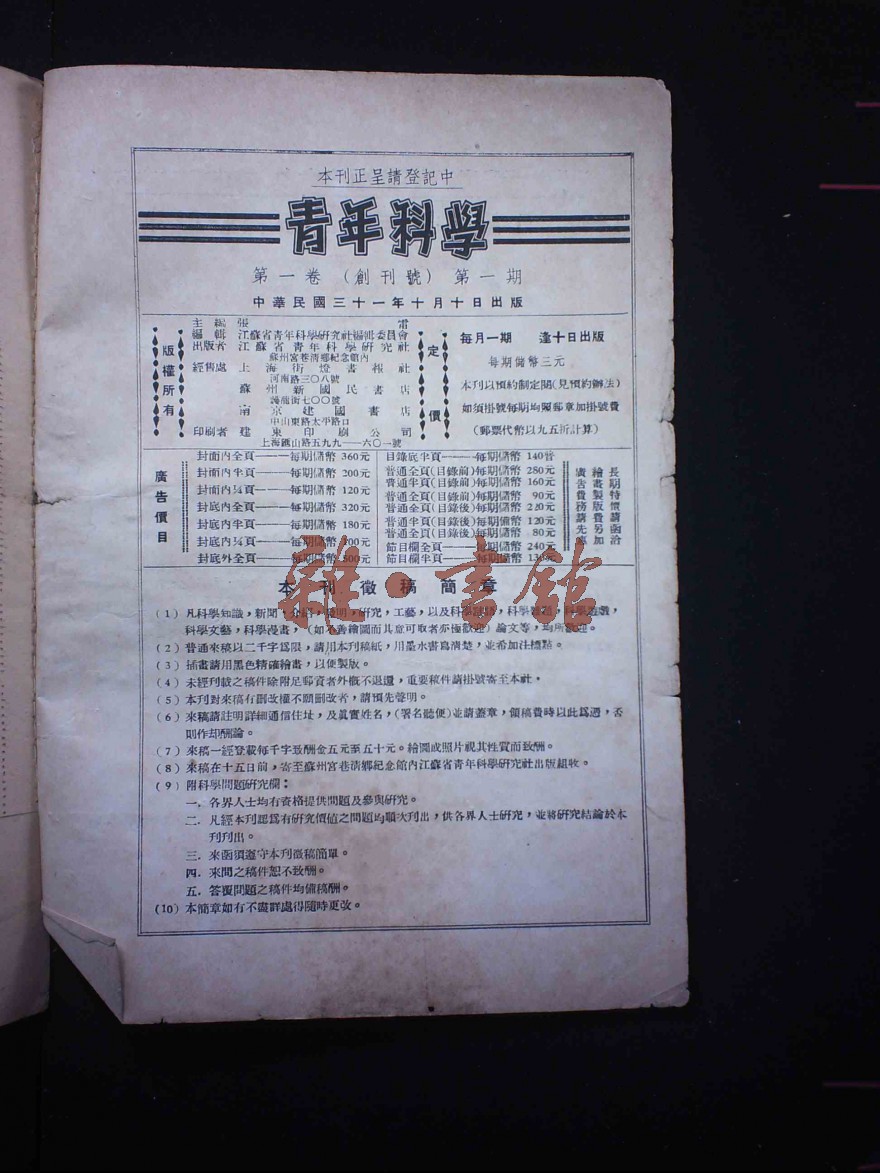 本刊正呈請登記中
青年科學
第一卷 (創刊號) 第一期
中華民國三十一年十月十日出版
版權所有
主編 張 雷
編輯 江蘇省青年科學研究社編輯委員會
出版者 江蘇省青年科學研究社
蘇州宮巷清鄉紀念館內
經售處 上海街燈書報社
河南路三〇八號
蘇州新國民書店
護龍街七〇〇號
南京建國書店
中山東路太平路口
印刷者 建東印刷公司
上海匯山路五九九——六〇一號
定價
每月一期 逢十日出版
每期儲幣三元
本刊以預約制定閱(見預約辦法)
如須掛號每期均須郵章加掛號費
(郵票代幣以九五折計算)
廣告價目
封面內全頁——每期儲幣 360元
封面內半頁——每期儲幣 200元
封面內¼頁——每期儲幣 120元
封底內全頁——每期儲幣 320元
封底內半頁——每期儲幣 180元
封底內¼頁——每期儲幣 100元
封底外全頁——每期儲幣 500元
目錄底半頁——每期儲幣 140
普通全頁(目錄前)每期儲幣 280元
普通半頁(目錄前)每期儲幣 160元
普通全頁(目錄前)每期儲幣 90元
普通全頁(目錄後)每期儲幣 220元
普通半頁(目錄後)每期儲幣 120元
普通全頁(目錄後)每期儲幣 80元
節目欄全頁——每期儲幣 240元
節目欄半頁——每期儲幣 130元
長期特價請函洽
繪畫製版費另加
廣告費務請先惠
本刊徵稿簡章
(1) 凡科學知識,新聞,介紹,發明,研究,工藝,以及科學,科學,科學遊戲,
科學文藝,科學漫畫,(如不善繪圖而其意可取者亦極歡迎)論文等,均所歡迎。
(2) 普通來稿以二千字爲限,請用本刊稿紙,用墨水書寫清楚,並希加注標點。
(3) 插畫請用黑色精確繪畫,以便製版。
(4) 未經刊載之稿件除附足郵資者外概不退還,重要稿件請掛號寄至本社。
(5) 本刊對來稿有刪改權不願刪改者,請預先聲明。
(6) 來稿請註明詳細通信住址,及眞實姓名,(署名聽便)並請蓋章,領稿費時以此爲憑,否
則作却酬論。
(7) 來稿一經登載每千字致酬金五元至五十元。繪圖或照片視其性質而致酬。
(8) 來稿在十五日前,寄至蘇州宮巷清鄉紀念館內江蘇省青年科學研究社出版組收。
(9) 附科學問題研究欄:
一. 各界人士均有資格提供問題及參與研究。
二. 凡經本刊認爲有研究價值之問題均順次刊出,供各界人士研究,並將研究結論於本
刊刊出。
三. 來函須遵守本刊徵稿簡單。
四. 來問之稿件恕不致酬。
五. 答覆問題之稿件均備稿酬。
(10) 本簡章如有不盡詳處得隨時更改。
雜·書館